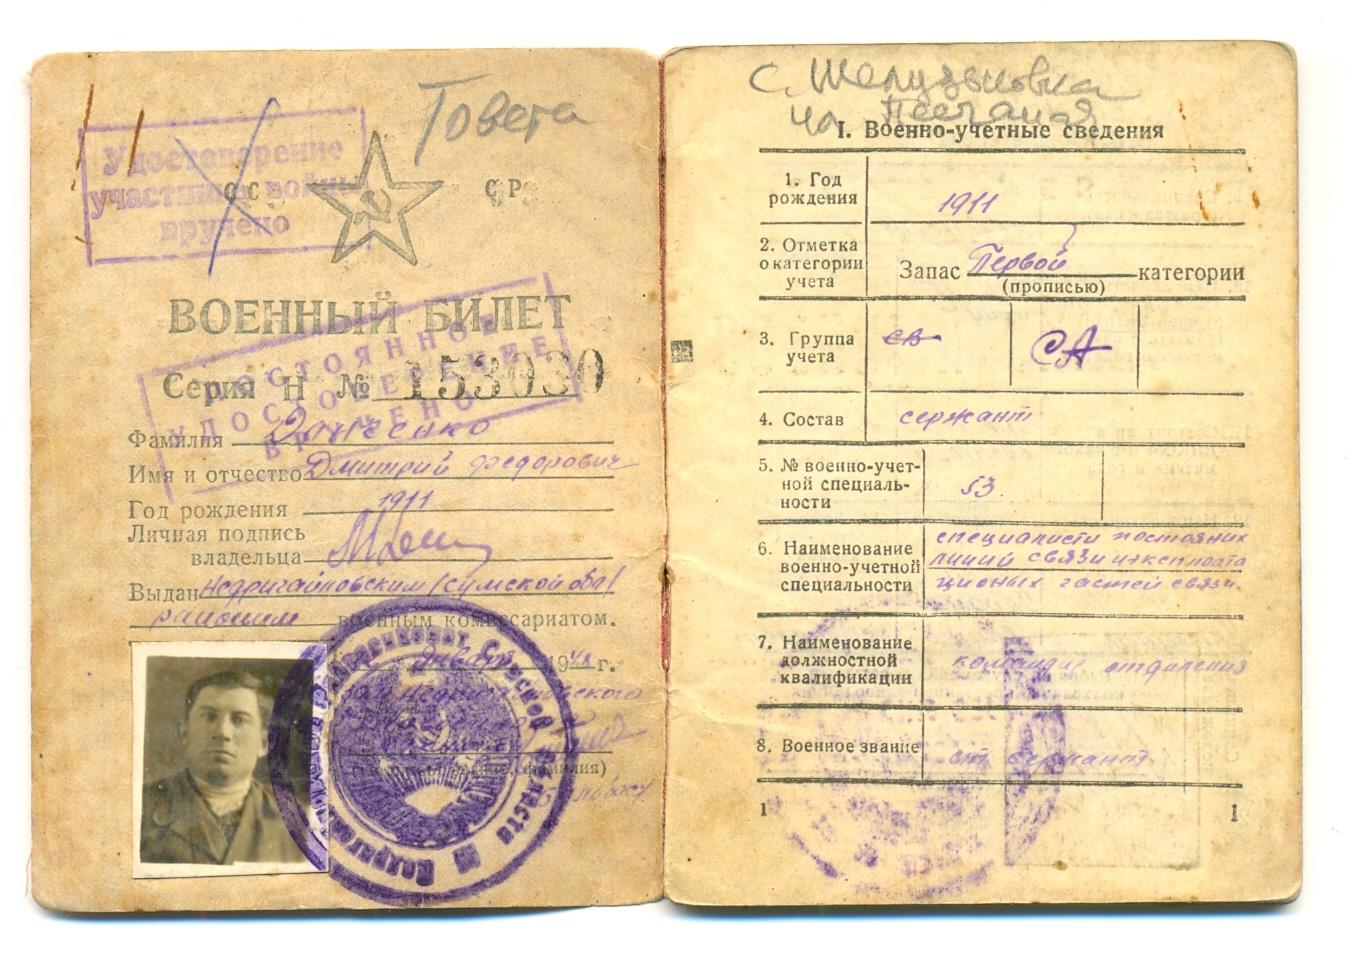 Товета
Удостоверение
участника войны
вручено
СССР
ВОЕННЫЙ БИЛЕТ
ПОСТОЯННОЕ
УДОСТОВЕРЕНИЕ
ВРУЧЕНО
Серия Н № 153030
Фамилия
Имя и отчество Дмитрий Федорович
Год рождения 1911
Личная подпись
владельца
Выдан Недригайловским (Сумской обл)
районным военным комиссариатом.
января 1948 г.
фамилия)
с.
Песчаная
I. Военно-учетные сведения
1. Год
рождения 1911
2. Отметка
о категории
учета
Запас Первой категории
(прописью)
3. Группа
учета
св СА
4. Состав сержант
5. № военно-учет-
ной специаль-
ности
53
6. Наименование
военно-учетной
специальности
специалисти постояних
линий связи и эксплоата
ционых частей связи.
7. Наименование
должностной
квалификации
командир отдиления
8. Военное звание ст сержант
1 1